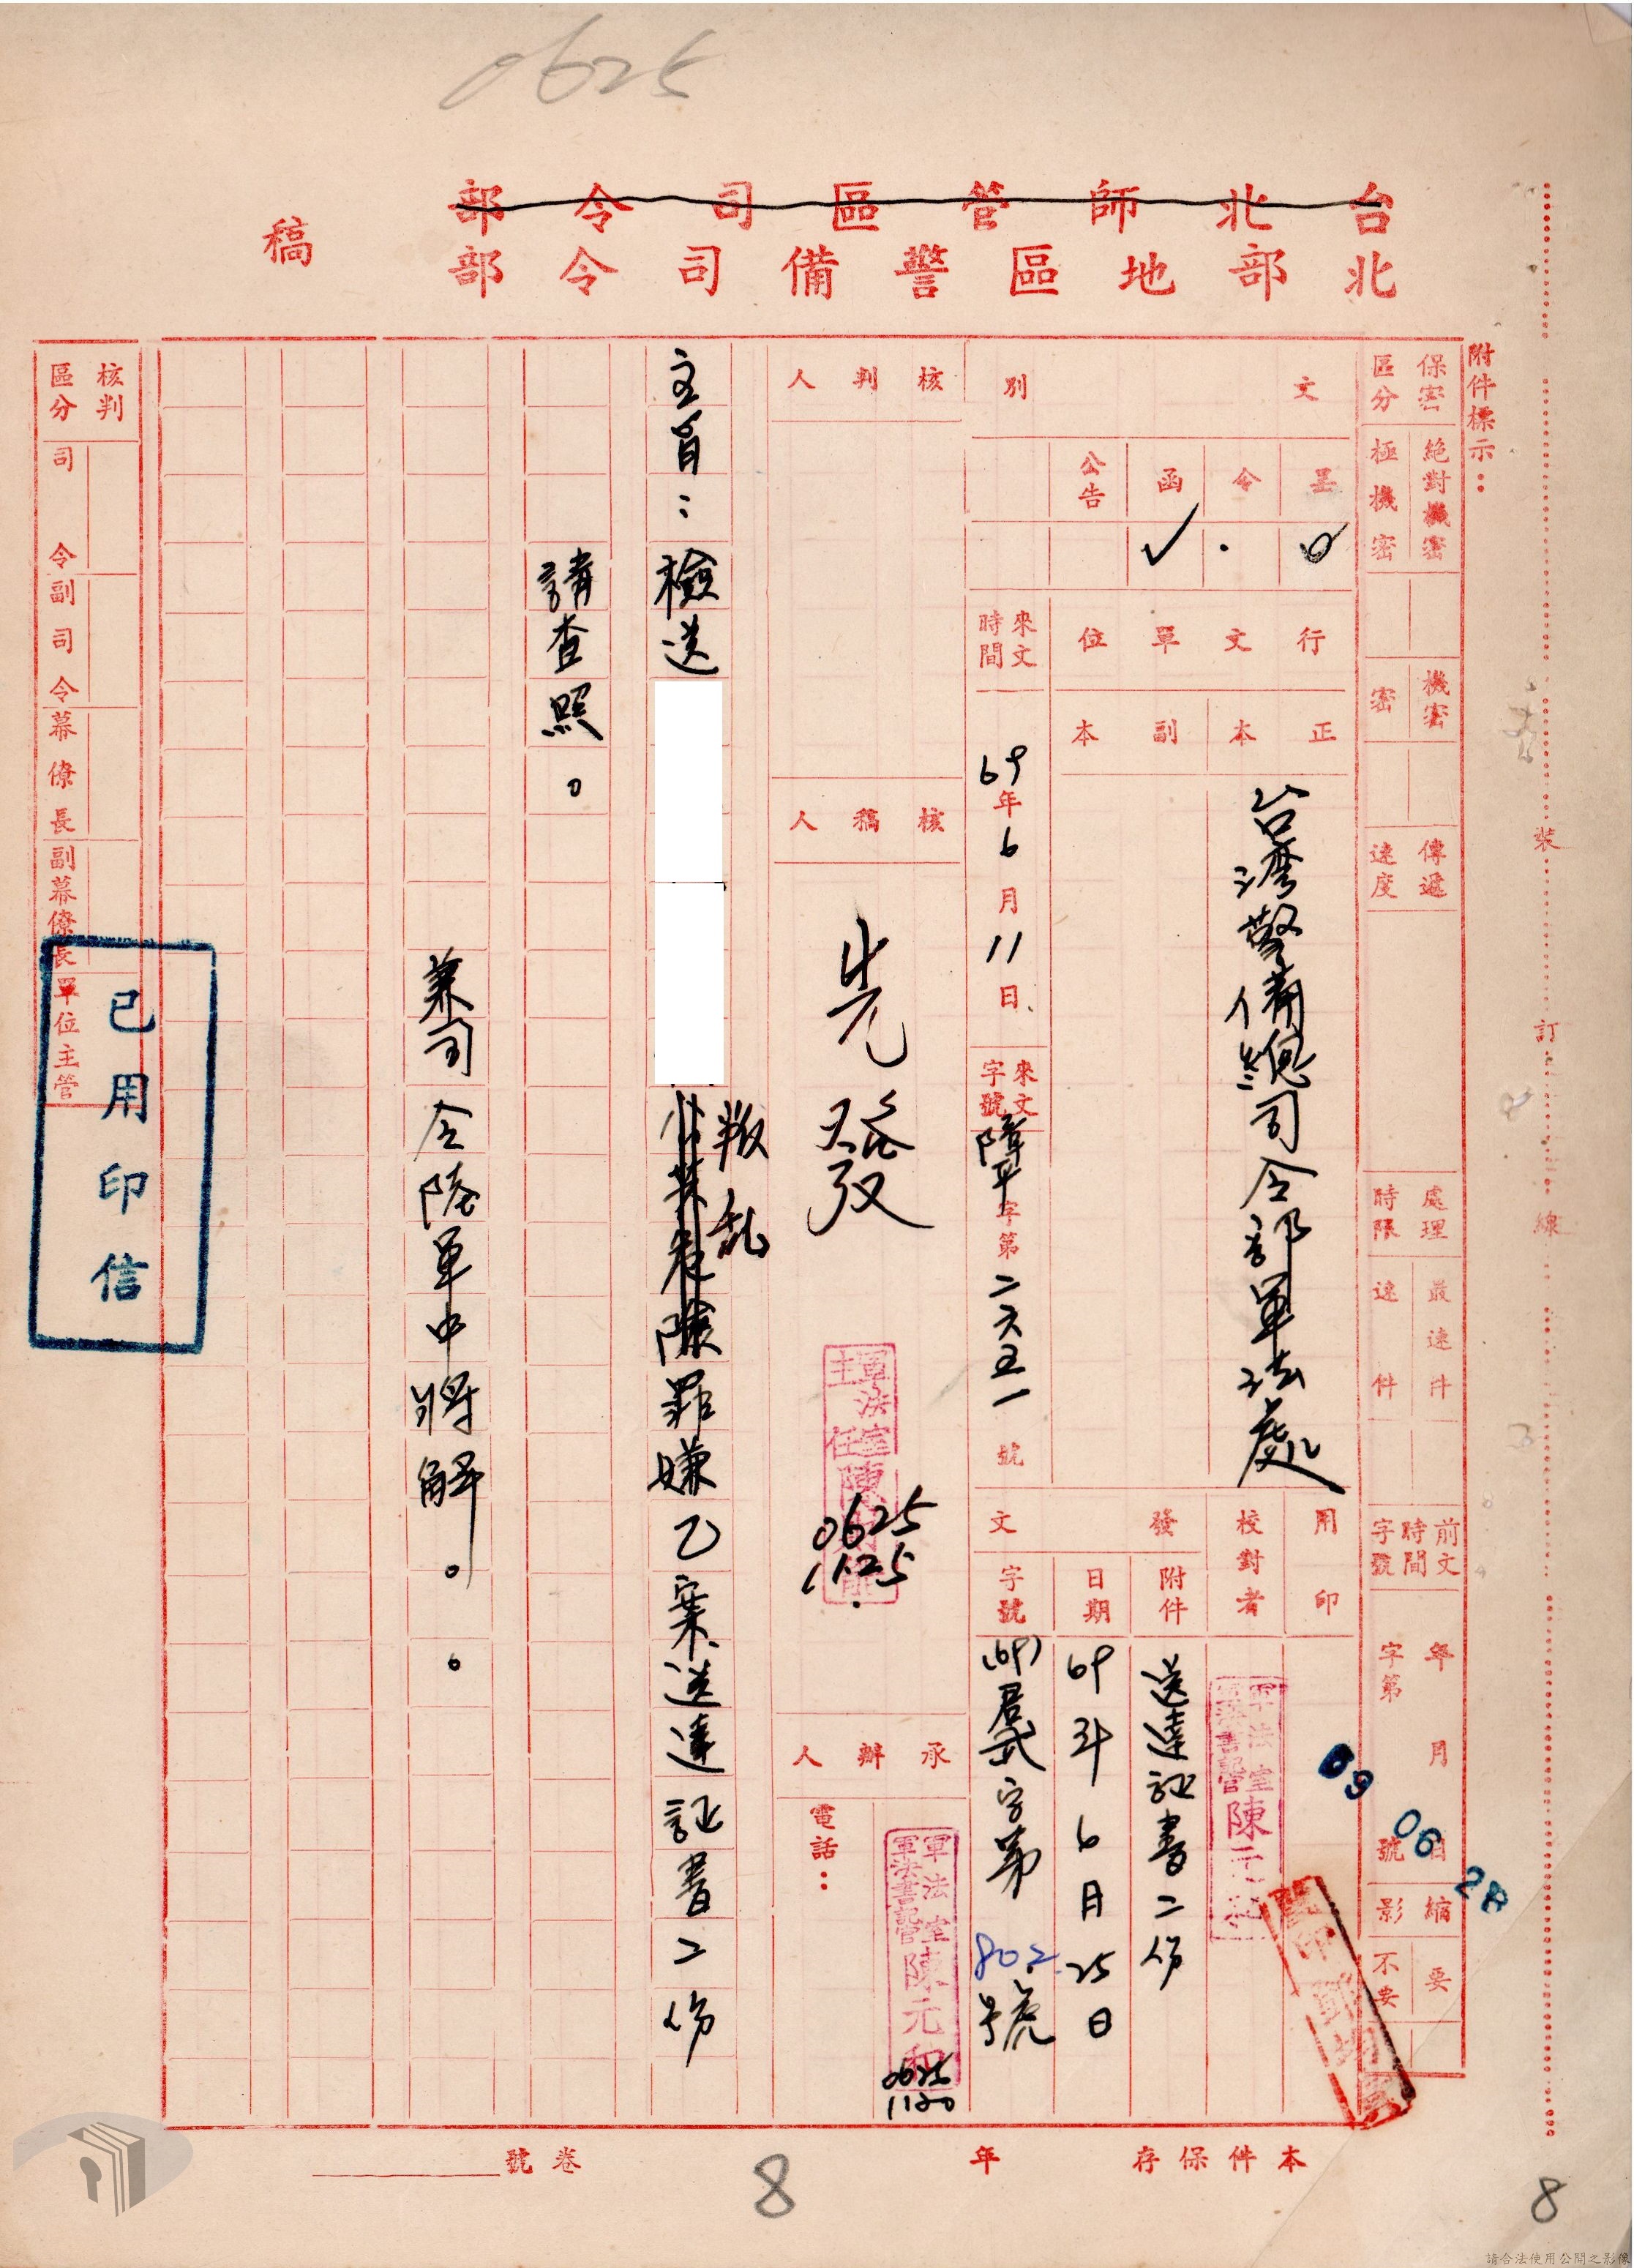 0625
台北師管區司令部
北部地區警備司令部
稿
附件標示：
保密區分
絕對機密
極機密
機密
密
傳遞速度
處理時限
最速件
速件
前文時間字號
年月日
字第號
縮影
要
不要
69 06 28
文別
呈
令
函
公告
✓
行文單位
正本
副本
台灣警備總司令部軍法處
用印
校對者
軍法室
軍法書記官
發文
附件
送達証書二份
日期
69年6月25日
字號
(69)君武字第802號
來文時間
69年6月11日
來文字號
障平字第二六五一號
核判人
核稿人
先發
軍法室
主任
0625
1125
承辦人
電話：
軍法室
軍法書記官
陳元和
0625
1120
主旨：檢送
叛乱
罪嫌乙案送達証書二份
請查照。
兼司令陸軍中將解。。
核判區分
司令
副司令
幕僚長
副幕僚長
單位主管
已用印信
裝
訂
線
本件保存
年
卷號
8
8
請合法使用公開之影像